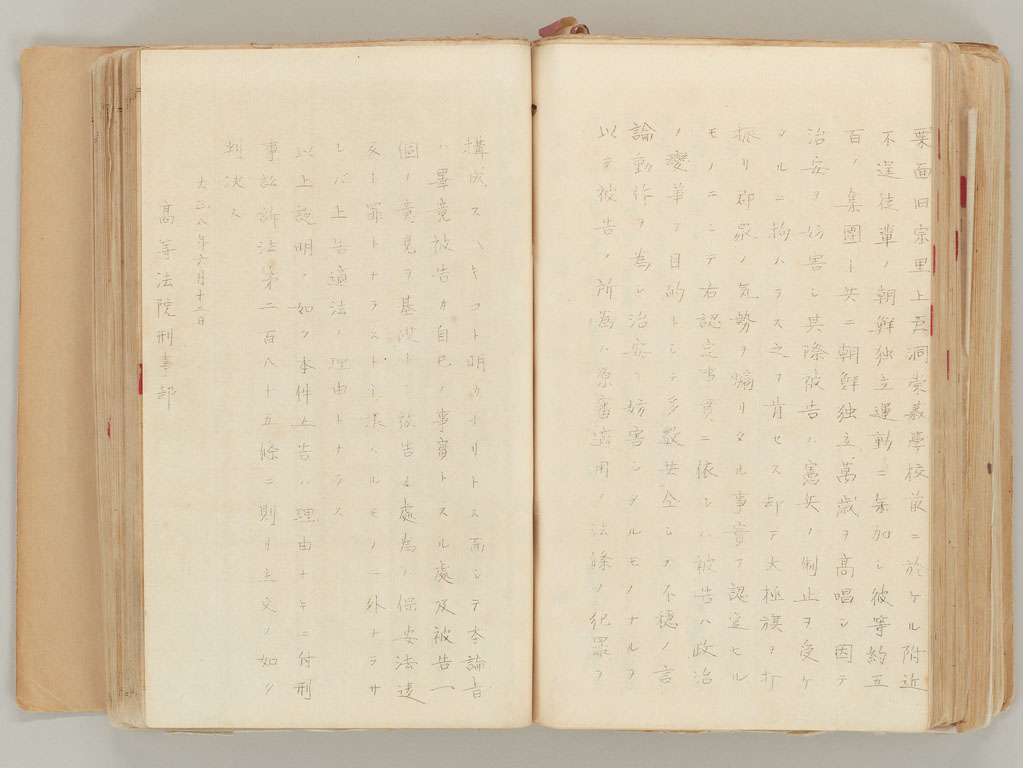 栗面旧宗里上表洞崇義學校前ニ於ケル附近
不逞徒輩ノ朝鮮独立運動ニ参加シ彼等約五
百ノ集團ト共ニ朝鮮独立萬歳ヲ高唱シ因テ
治安ヲ妨害シ其際被告ハ憲兵ノ制止ヲ受ケ
タルニ拘ハラス之ヲ肯セス却テ太極旗ヲ打
振リ郡衆ノ気勢ヲ煽リタル事實ヲ認定セル
モノニシテ右認定事實ニ依レハ被告ハ政治
ノ変革ヲ目的トシテ多数共仝シテ不穏ノ言
論動作ヲ為シ治安ヲ妨害シタルモノナルヲ
以テ被告ノ所為ハ原審適用ノ法條ノ犯罪ヲ
構成スヘキコト明カナリトス而シテ本論旨
ハ畢竟被告カ自己ノ事實トスル處及被告一
個ノ意見ヲ基礎トシ被告ノ處為ハ保安法違
反ト罪トナラスト主張スルモノニ外ナラサ
レバ上告適法ノ理由トナラス
以上説明ノ如ク本件上告ハ理由ナキニ付刑
事訟訴法第二百八十五條ニ則リ主文ノ如ク
判決ス
大正八年六月十二日
高等法院刑事部